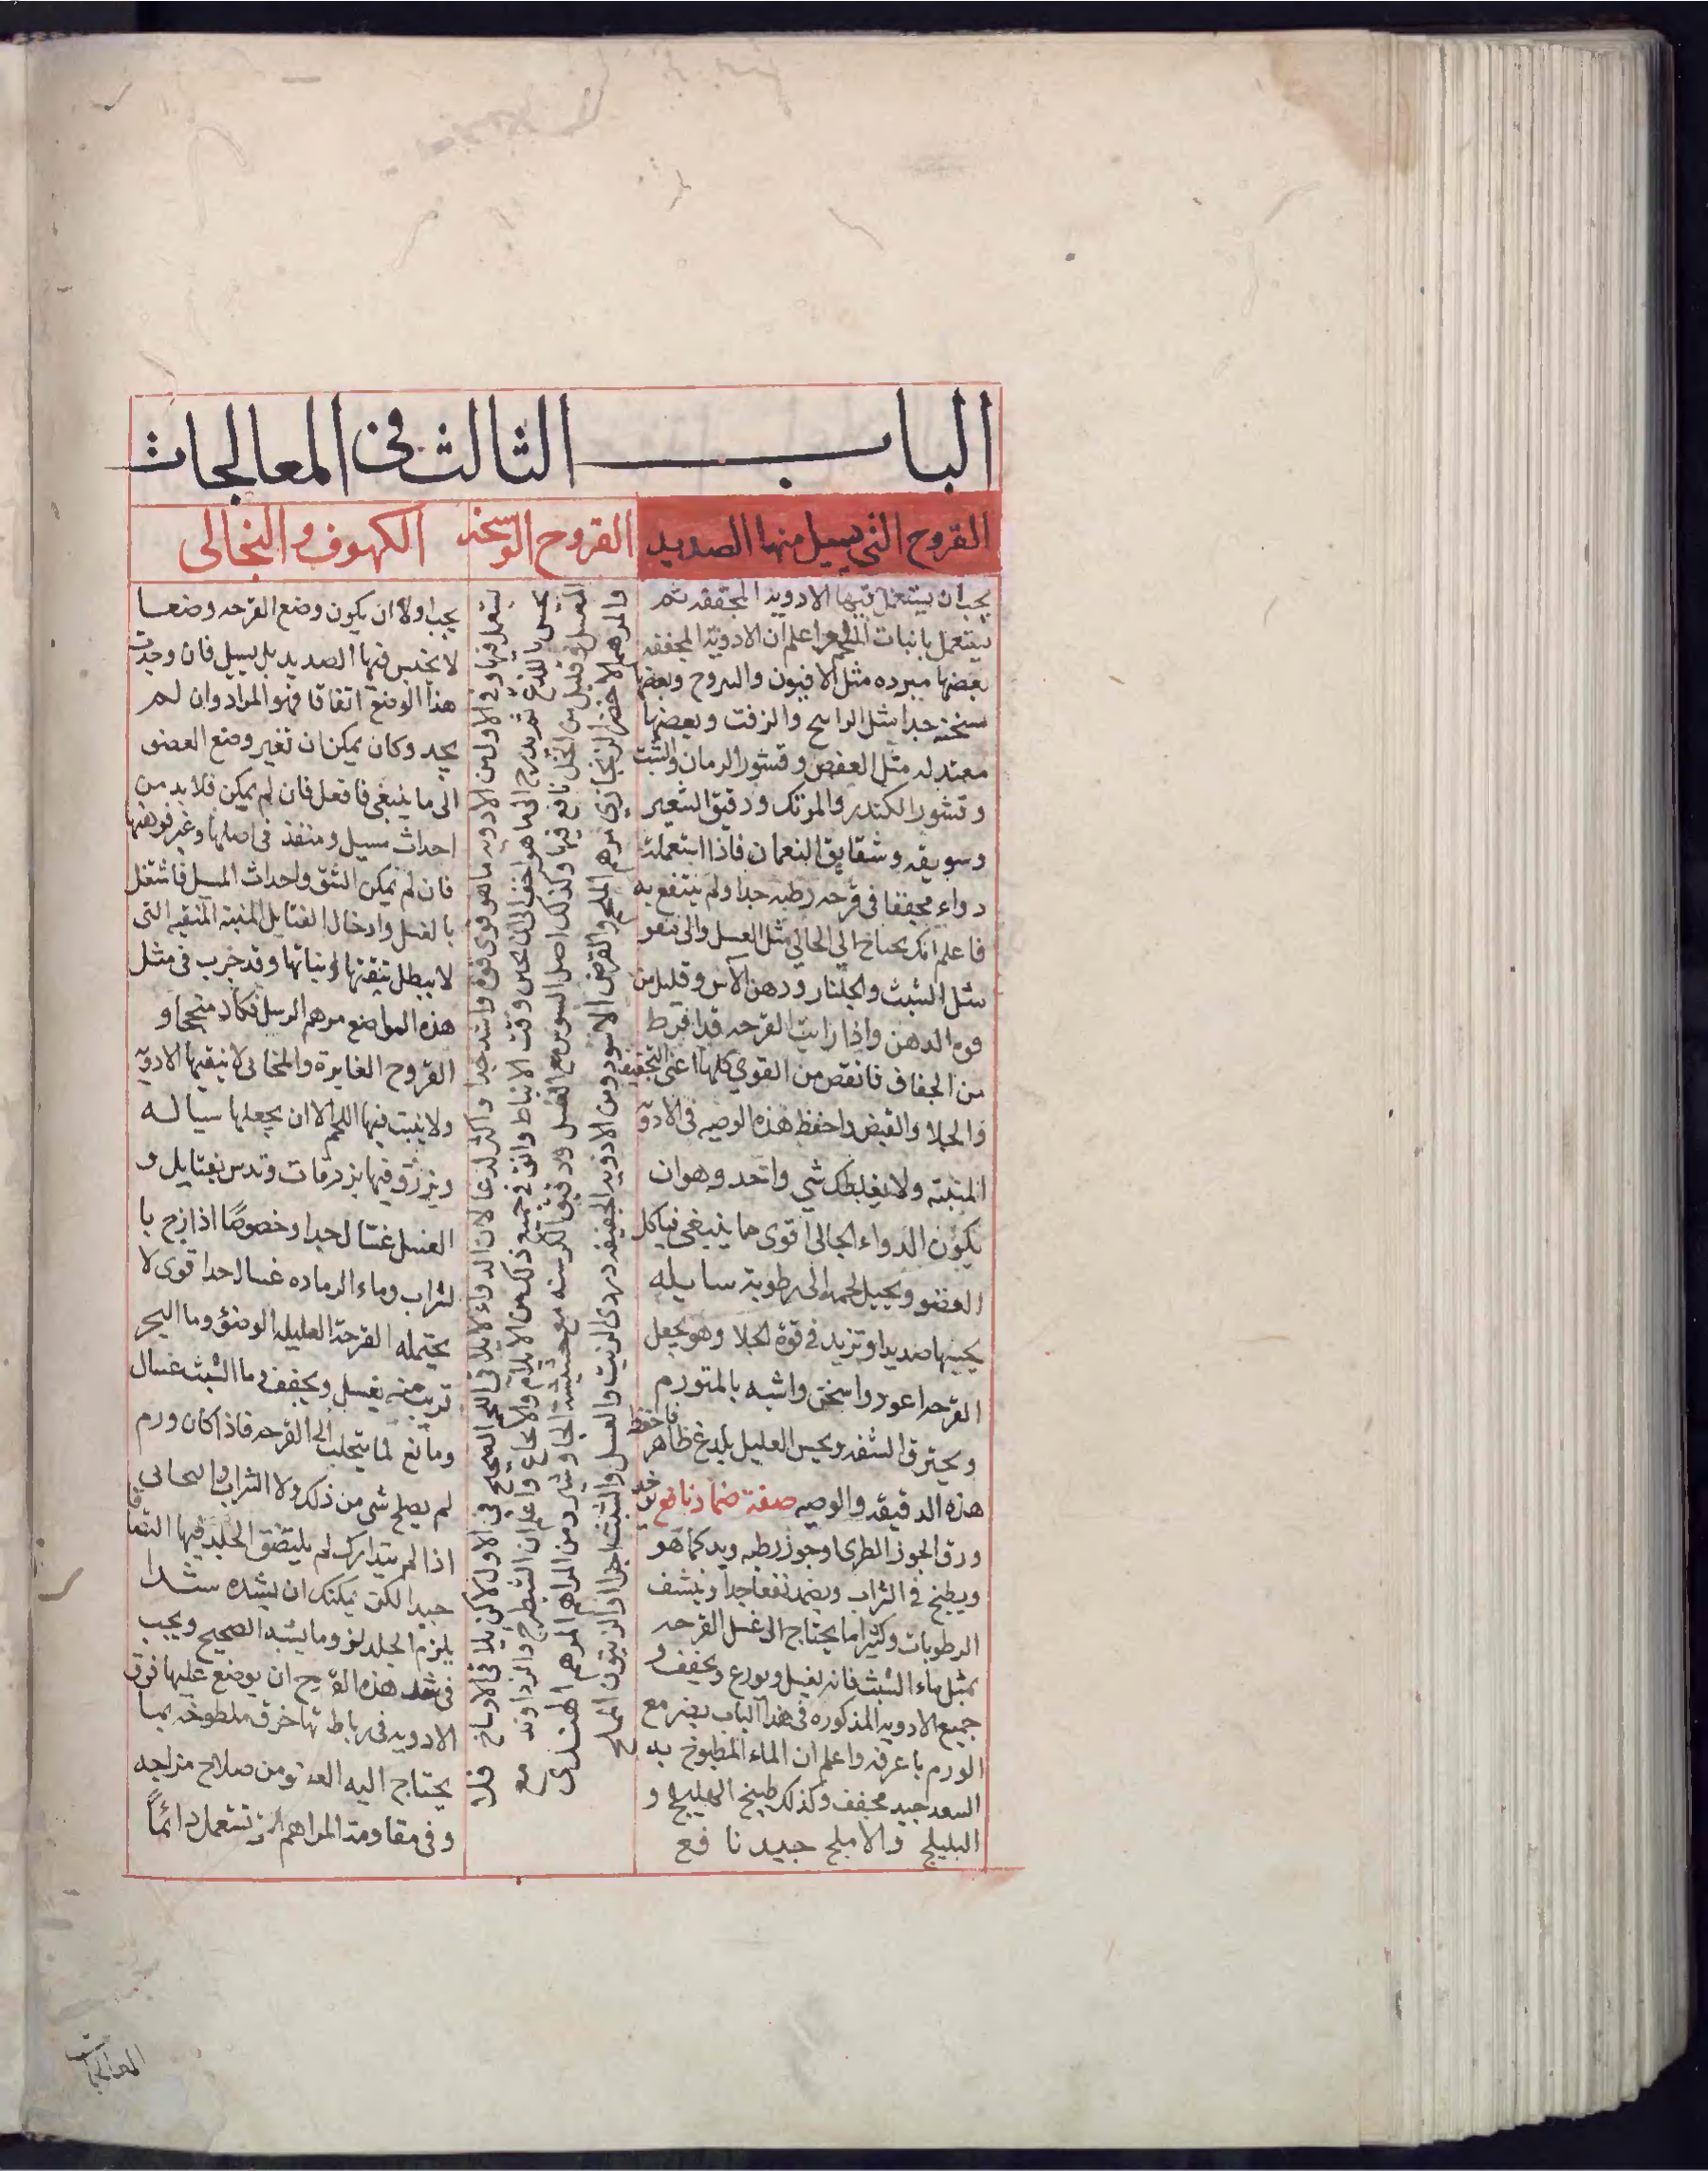 الباب الثالث في المعالجات
القروح التي يسيل منها الصديد
القروح الوسخه
الكهوف و المخالى
يجب ان يستعمل فيها الادويه المجففه ثم
يستعمل بانبات اللحم واعلم ان الادوية المجففه
بعضها مبرده مثل الافيون واليبروح وبعضها
سخنه جدا مثل الراتنج والزفت وبعضها
معتدله مثل العفص وقشور الرمان والشبث
وقشور الكندر والمرتك ودقيق الشعير
وسويقه وشقايق النعمان فاذا استعملت
دواء مجففا في قرحه رطبه جدا ولم ينتفع به
فاعلم انك تحتاج الى الجالي مثل العسل والى
مثل الشبث والجلنار ودهن الآس وقليل من
قوه الدهن واذا رايت القرحه قد افرط
من الجفاف فانقص من القوي كلها اعني التجفيف
والجلا والقبض واحفظ هذه الوصيه في الادوية
المنبته ولا يغلطك شي واحد وهو ان
يكون الدواء الجالى اقوى مما ينبغي فياكل
العضو ويحيل لحمه الى رطوبة سايله
يحسبها صديدا وتزيد في قوة الجلا وهو يجعل
القرحه اغور واسخن واشبه بالمتورم
ويحترق الشفه ويحس العليل بلدغ ظاهر فاحفظ
هذه الدقيقه والوصيه صفة ضماد نافع يوخذ
ورق الجوز الطرى او جوز رطبه ويد كما هو
ويطبخ في الشراب ويضمد نفعا جدا وينشف
الرطوبات وكثيرا ما يحتاج الى غسل القرحه
بمثل ماء الشبث فانه يغسل ويردع ويجفف و
جميع الادويه المذكوره في هذا الباب يضر مع
الورم فاعرفه واعلم ان الماء المطبوخ به
السعد جيد مجفف وكذلك طبيخ الهليلج و
البليلج والاملج جيد نافع
يستعمل فيها وفي الاول من الادويه ما هو قوى قوة واشد جدا واكثر لذعا لان الدواء لا يلاقى اللحم الصحيح في الاول لكن يلاقى الاوساخ فلا
يحس باللذع ثم يتدرج الى ما هو اخف الى ان يحس وقت الانبات وانق في جميع ذلك من الايلام والايجاع واعلم ان الشيطرج والزراوند مع
العسل وقليل من الخل نافع فيها وكذلك اصل السوس مع العسل ودقيق الكرسنه مع حشيشة الجاوشير ومن المراهم المرهم الهندى
والمرهم الاخضر الزنجاري ومرهم الملح والقرص الاسود ومن الادويه الجيفه دردى الزيت والعسل والشبث اجزا والزيتون المملح
يجب اولا ان يكون وضع القرحه وضعا
لا يحتبس فيها الصديد بل يسيل فان وجدت
هذا الوضع اتفاقا فهو المراد وان لم
يجد وكان يمكن ان تغير وضع العضو
الى ما ينبغي فافعل فان لم يمكن فلا بد من
احداث مسيل ومنفذ في اصلها وغير فوهتها
فان لم يمكن الشق واحداث المسيل فاشتغل
بالغسل وادخال الفتايل المنبته المنقيه التى
لا يبطل تنقيتها انباتها وقد جرب في مثل
هذه المواضع مرهم الرسل فكان منجحا و
القروح الغايرة والمخالى لا ينقيها الادوية
ولا ينبت فيها اللحم الا ان يجعلها سياله
ويزرق فيها بزرقات وتدس بفتايل و
العسل غسال جدا وخصوصا اذا مزج با
لشراب وماء الرماد غسال جدا قوى لا
يحتمله القرحة العليله الوضؤ وما البحر
قريب منه يغسل ويجفف وما الشبث غسال
ومانع لما يتجلب الى القرحه فاذا كان ورم
لم يصلح شى من ذلك ولا الشراب والسحابى
اذا لم يتدارك لم يلتصق الجلد فيها التصاقا
جيدا لكن يمكنك ان يشده شدا
يلزم الجلد لزوما يشبه الصحيح ويجب
في شد هذه القروح ان يوضع عليها فوق
الادويه في رباطاتها خرق ملطوخه بما
يحتاج اليه العضو من صلاح مزاجه
وفي مقاومة المراهم التى تستعمل دائمًا
المعالجات